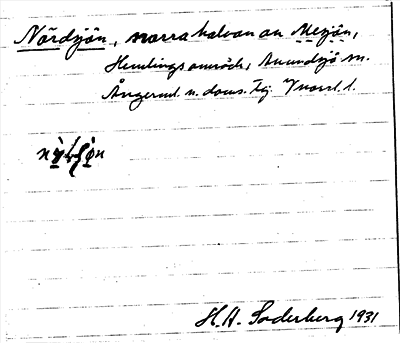 Nördsjön, norra halvan av Mesjön,
Hemlingsområde, Anundsjö sn.
Ångerml. n. doms. tg. Vnorrl. l.
H.A. Söderberg 1931